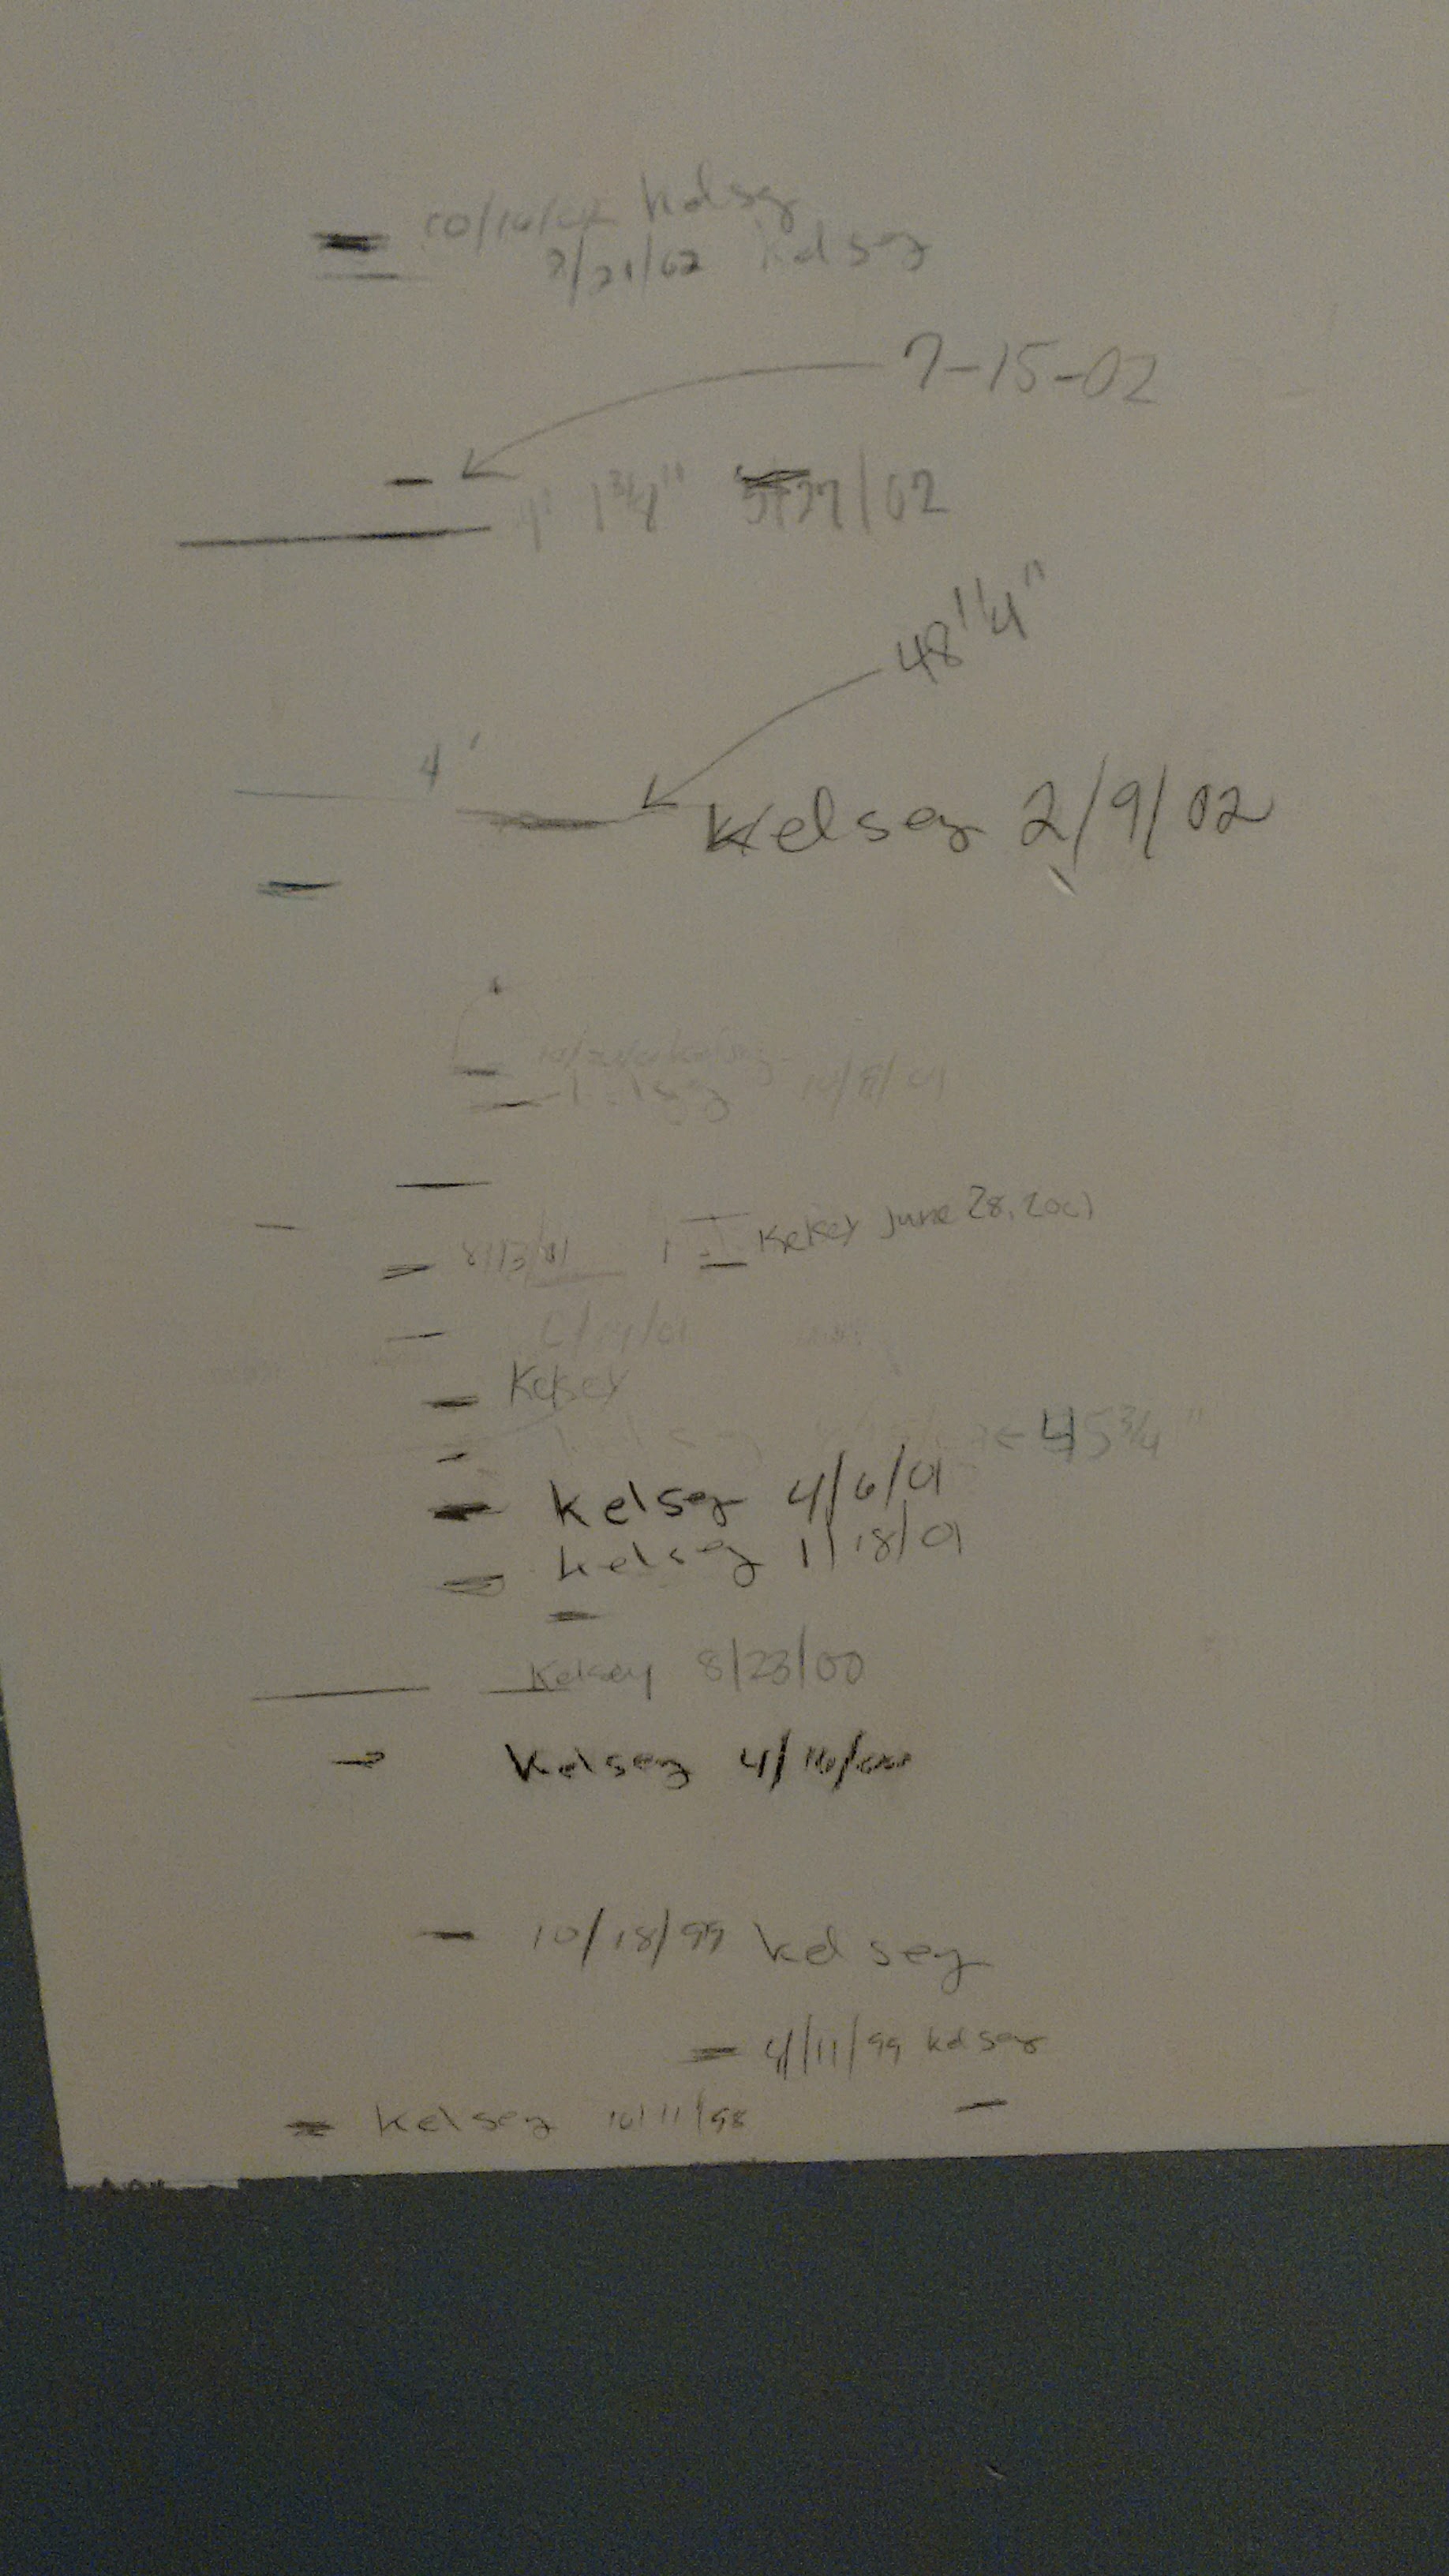 10/16/02 Kelsey
9/21/02 Kelsey
7-15-02
4' 1 3/4" 5/27/02
48 1/4"
4'
Kelsey 2/9/02
Kelsey 10/8/01
Kelsey June 28, 2001
8/13/01
6/14/01
Kelsey
← 45 3/4"
Kelsey 4/6/01
Kelsey 1/18/01
Kelsey 8/23/00
Kelsey 4/16/00
10/18/99 Kelsey
4/11/99 Kelsey
Kelsey 10/11/98